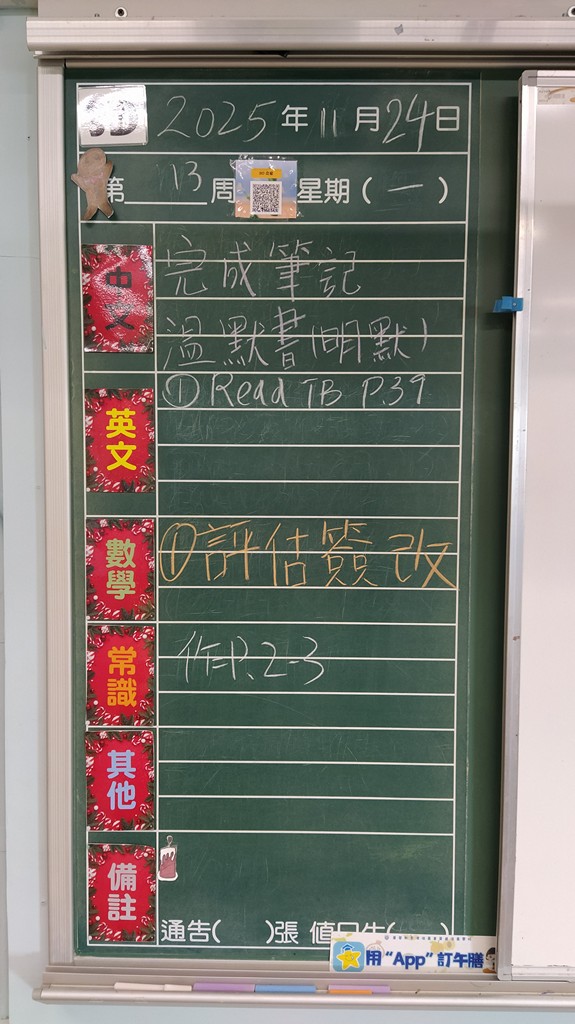 2025年11月24日
第13周 星期(一)
中文 完成筆記
溫默書(明默)
英文 ① Read TB P.39
數學 ① 評估簽改
常識 作P.2-3
其他
備註
通告( )張 值日生( )
用 "App" 訂午膳